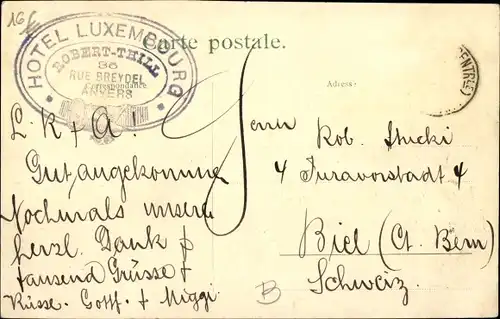 HOTEL LUXEMBOURG
ROBERT-THILL
38
RUE BREYDEL
ANVERS
Carte postale.
Correspondance
Adresse:
(ENTRE)
L. K + A!
Gut angekommen
Nochmals unsern
herzl. Dank &
tausend Grüsse +
Küsse. Gottf. + Miggi
Herrn Rob. Stucki
4 Juravorstadt 4
Biel (Ct. Bern)
Schweiz.
B